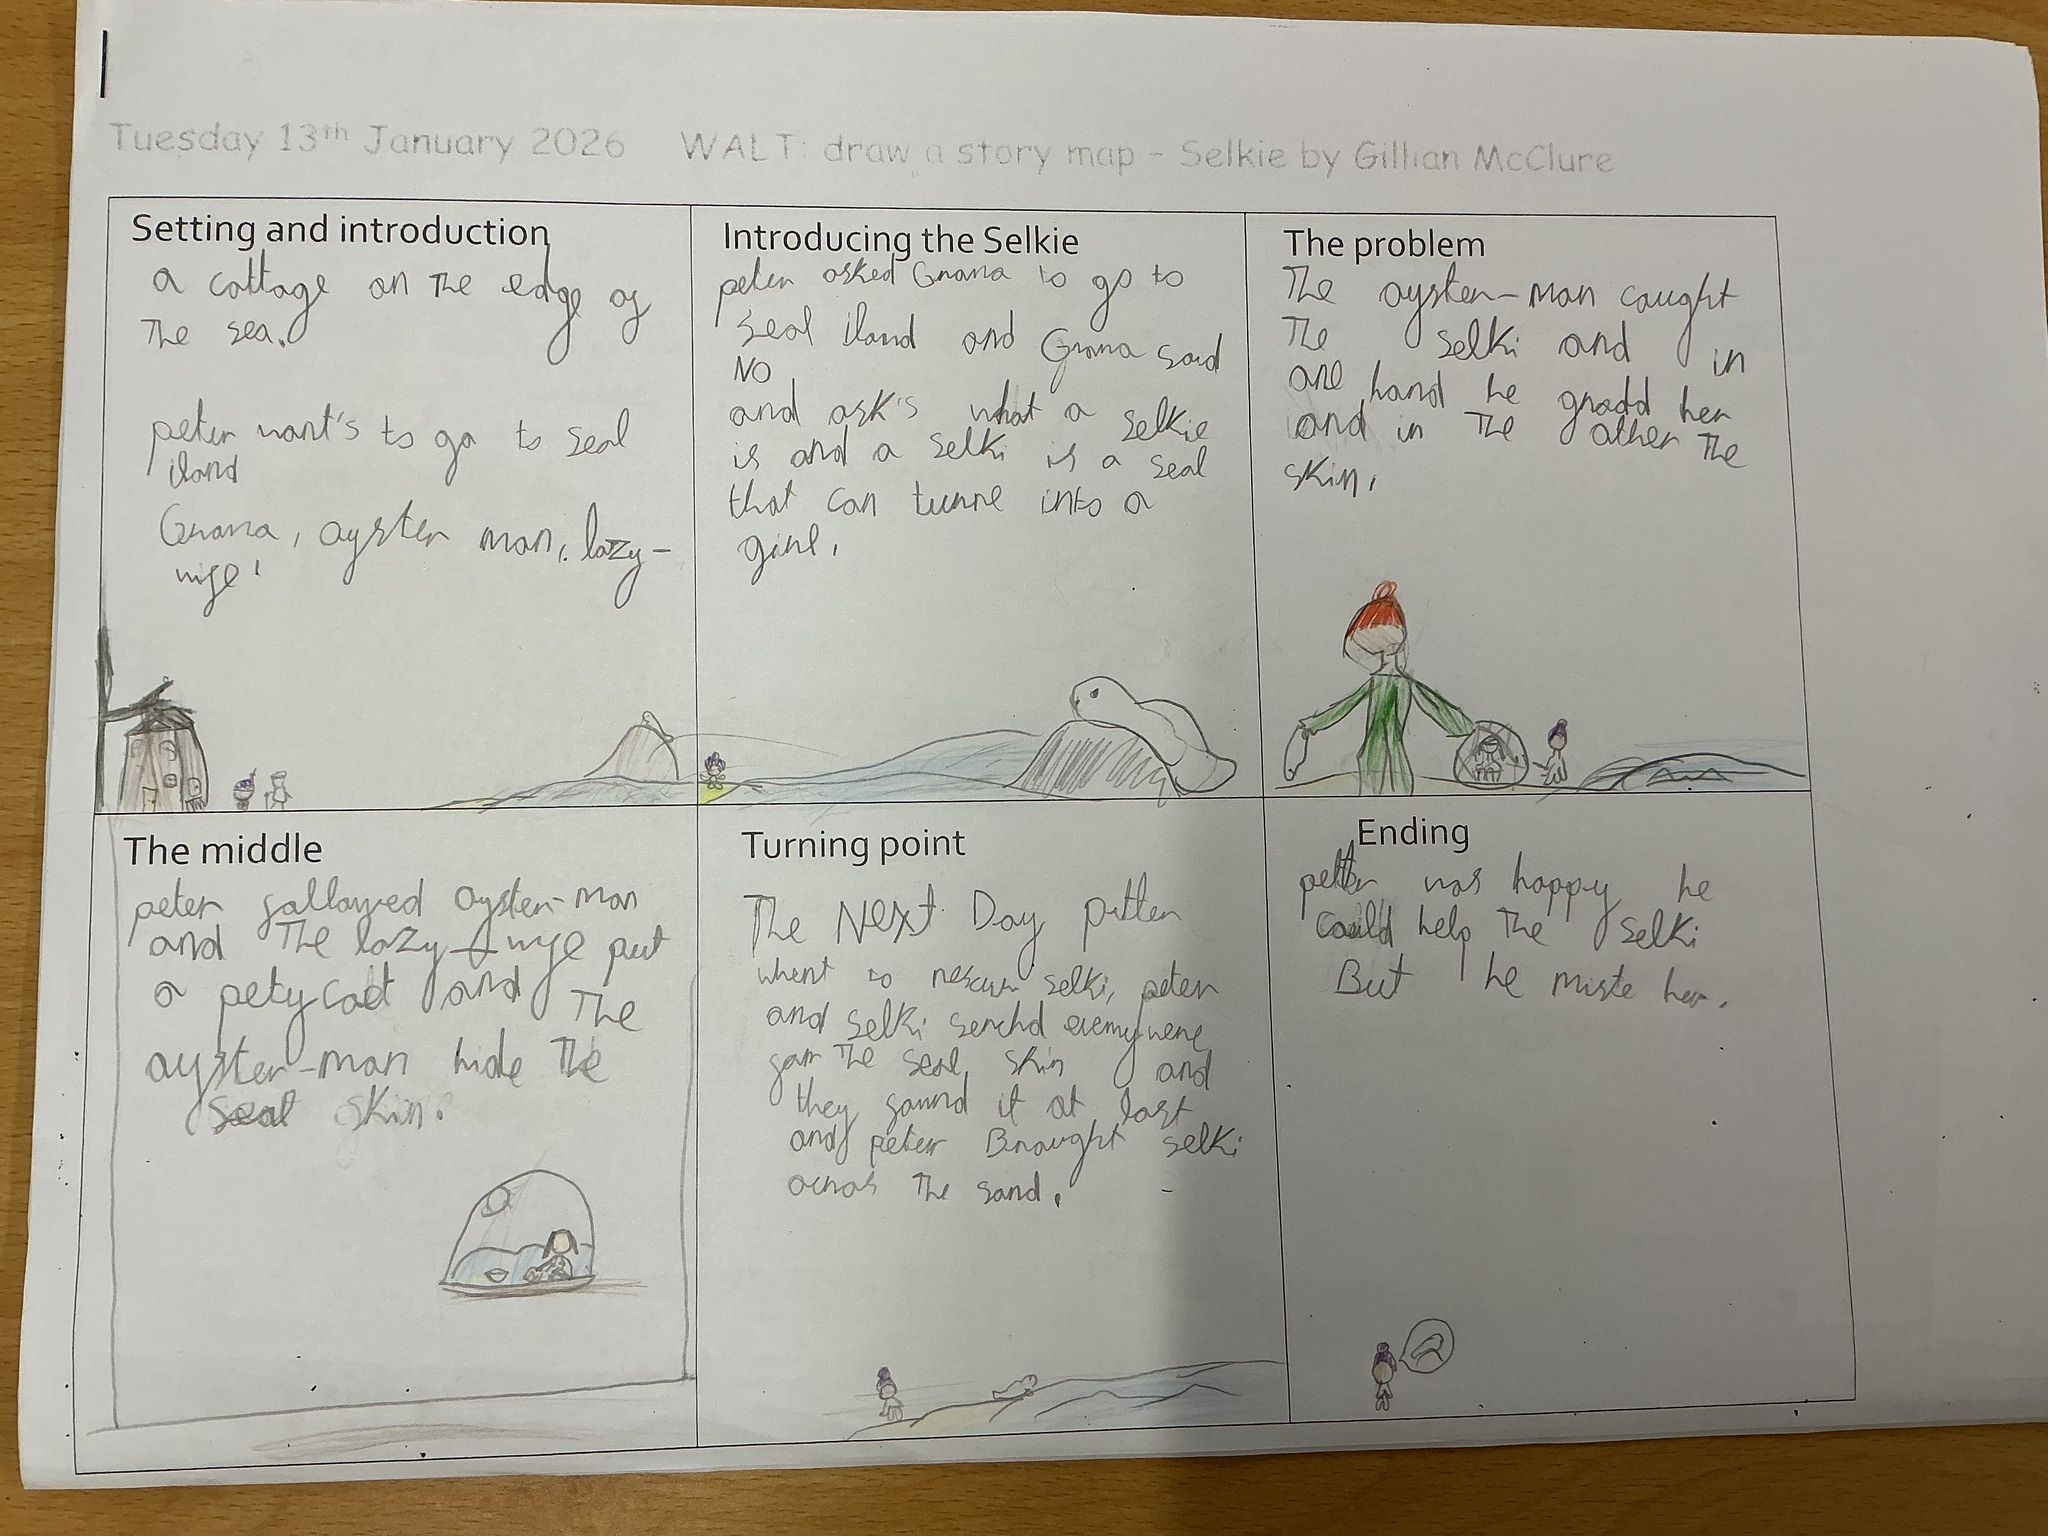 Tuesday 13th January 2026 WALT: draw a story map - Selkie by Gillian McClure
Setting and introduction
a cottage on the edge of
the sea.
peter want's to go to seal
iland
Grana, oyster man, lazy-
wife.
Introducing the Selkie
peter asked Grana to go to
seal iland and Grana said
NO
and ask's what a selkie
is and a selki is a seal
that can turne into a
girl.
The problem
The oyster-man caught
The selki and in
one hand he gradd her
and in the other the
skin.
The middle
peter followed oyster-man
and the lazy-wife put
a petycoct and The
oyster-man hide the
seal skin.
Turning point
The Next Day petter
whent to rescue selki, peter
and selki serchd everywere
for the seal skin and
they found it at last
and peter Brought selki
acros the sand.
Ending
petter was happy he
could help the selki
But he miste her.